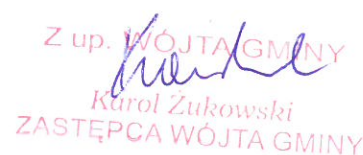 Z up. WÓJTA GMINY
Karol Żukowski
ZASTĘPCA WÓJTA GMINY